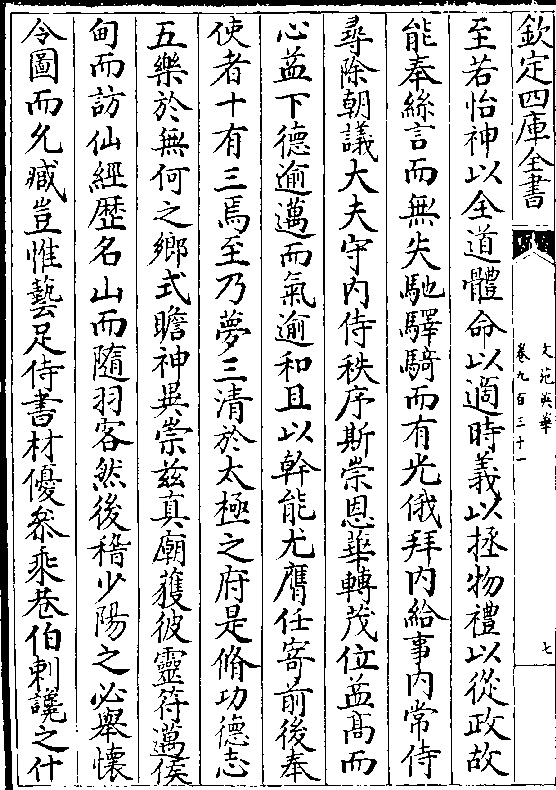 欽定四庫全書
文苑英華
卷九百三十一
七
至若怡神以全道體命以適時義以拯物禮以從政故
能奉絲言而無失馳驛騎而有光俄拜内給事内常侍
尋除朝議大夫守内侍秩序斯崇恩華轉茂位益髙而
心益下德逾邁而氣逾和且以幹能尤膺任寄前後奉
使者十有三焉至乃夢三清於太極之府是脩功德志
五樂於無何之鄉式瞻神異崇兹真廟獲彼靈符邁侯
甸而訪仙經歴名山而隨羽客然後稽少陽之必舉懐
令圖而允臧豈惟藝足侍書材優叅乘巷伯刺讒之什